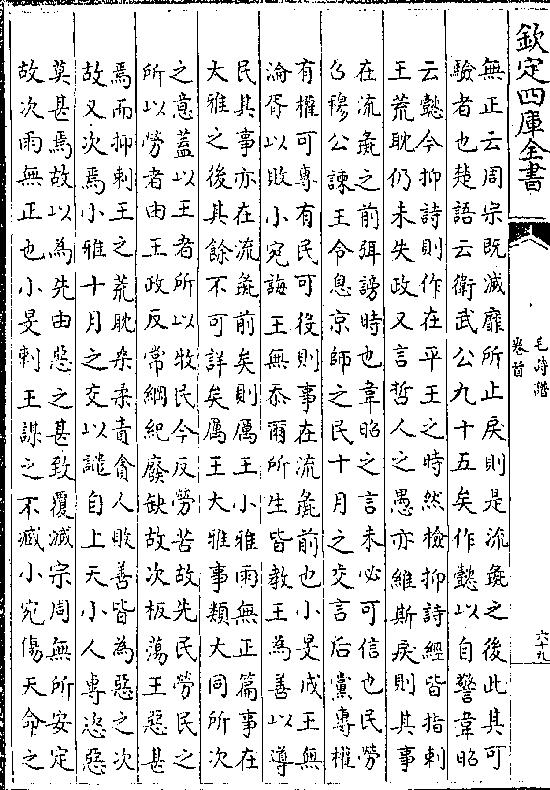 欽定四庫全書
毛詩譜
卷首
六十九
無正云周宗既滅靡所止戾則是流彘之後此其可
驗者也楚語云衛武公九十五矣作懿以自警韋昭
云懿今抑詩則作在平王之時然檢抑詩經皆指刺
王荒耽仍未失政又言哲人之愚亦維斯戾則其事
在流彘之前弭謗時也韋昭之言未必可信也民勞
召穆公諫王令息京師之民十月之交言后黨專權
有權可專有民可役則事在流彘前也小旻戒王無
淪胥以敗小宛誨王無忝爾所生皆教王為善以導
民其事亦在流彘前矣則厲王小雅雨無正篇事在
大雅之後其餘不可詳矣厲王大雅事類大同所次
之意蓋以王者所以牧民今反勞苦故先民勞民之
所以勞者由王政反常綱紀廢缺故次板蕩王惡甚
焉而抑刺王之荒耽桒柔責貪人敗善皆為惡之次
故又次焉小雅十月之交以譴自上天小人專恣惡
莫甚焉故以為先由惡之甚致覆滅宗周無所安定
故次雨無正也小旻刺王謀之不臧小宛傷天命之